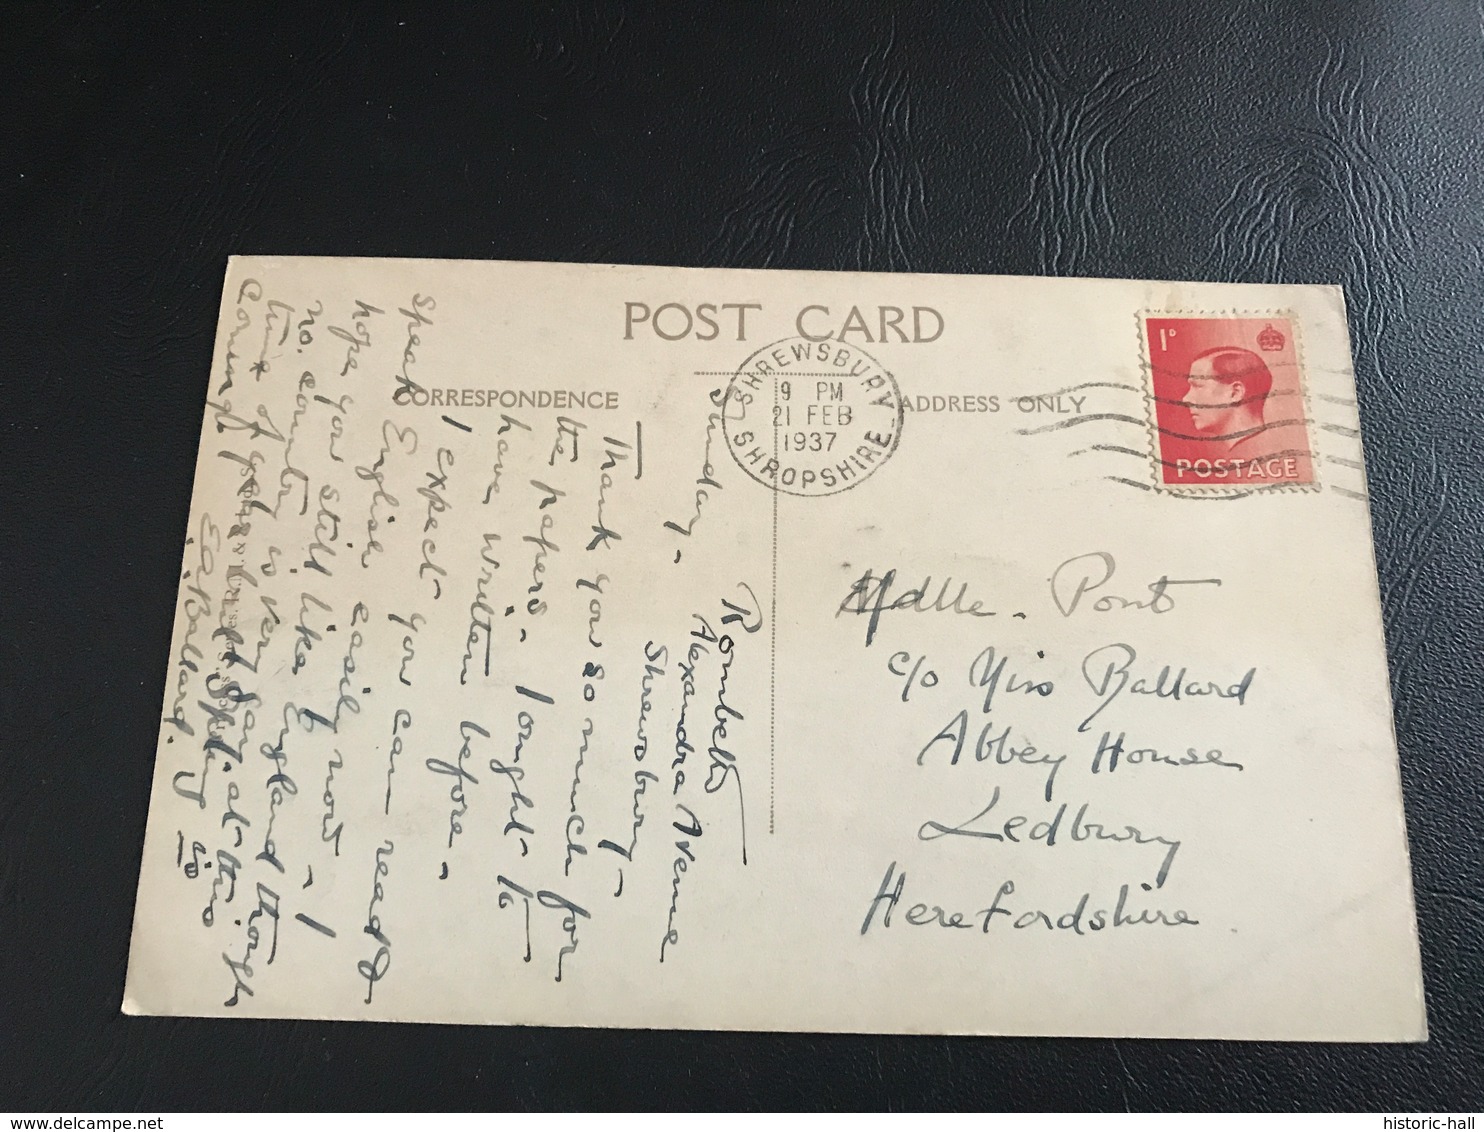 POST CARD
CORRESPONDENCE
ADDRESS ONLY
SHREWSBURY
9 PM
21 FEB
1937
SHROPSHIRE
1D
POSTAGE
Sunday -
Alexandra Avenue
Shrewsbury -
Thank you so much for
the papers - I ought to
have written before -
I expect you can read &
speak English easily now - I
hope you still like England though
no. country is very gay at this
time of year
Coming
E. Ballard.
Mdlle - Pont
c/o Miss Ballard
Abbey House
Ledbury
Herefordshire
historic-hall
delcampe.net